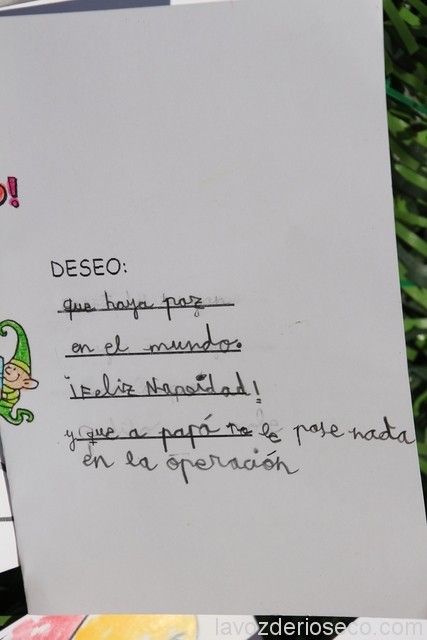 o!
DESEO:
que haya paz
en el mundo.
¡Feliz Navidad!
y que a papá no le pase nada
en la operación
lavozderioseco.com